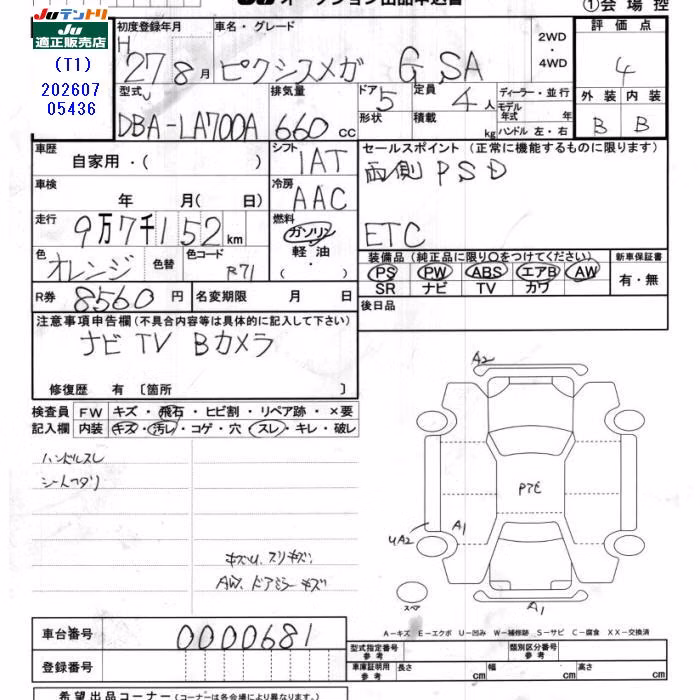 Juテントリ
適正販売店
(T1)
202607
05436
①会場控
初度登録年月 車名・グレード 2WD ・ 4WD 評価点
H 27 8月 ピクシスメガ G SA 4
型式 排気量 ドア 5 定員 4人 ディーラー・並行 外装 内装
DBA-LA700A 660cc 形状 積載 kg モデル年式 年 ハンドル 左・右 B B
車歴 自家用・( ) シフト IAT セールスポイント (正常に機能するものに限ります)
両側 PSD
車検 年 月( 日) 冷房 AAC
走行 9万7千152km 燃料 ガソリン ETC
軽油
・( )
色 オレンジ 色替 色コード R71
装備品 (純正品に限り○をつけてください) 新車保証書
PS PW ABS エアB AW 有・無
SR ナビ TV カワ
R券 8560円 名変期限 月 日 後日品
注意事項申告欄(不具合内容等は具体的に記入して下さい)
ナビ TV Bカメラ
修復歴 有 〔箇所 〕
検査員 FW キズ・飛石・ヒビ割・リペア跡・×要
記入欄 内装 キズ・汚レ・コゲ・穴・スレ・キレ・破レ
ハンドルスレ
シートヘタリ
キズU、スリキズ、
AW、ドアミラーキズ
A2
PTE
UA2
A1
スペア
A1
A-キズ E-エクボ U-凹み W-補修跡 S-サビ C-腐食 XX-交換済
車台番号 0000681
登録番号
型式指定番号 参考 類別区分番号 参考
車庫証明用 参考 長さ cm 幅 cm 高さ cm
希望出品コーナー (コーナーは各会場により異なります。)